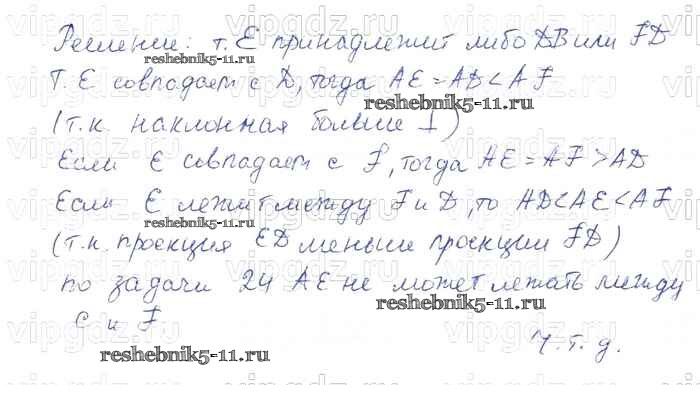 Решение: т. E принадлежит либо DB или FD
Т. E совпадает с D, тогда AE = AD < AF
(т.к. наклонная больше ⊥)
Если E совпадает с F, тогда AE = AF > AD
Если E лежит между F и D, то AD < AE < AF
(т.к. проекция ED меньше проекции FD)
по задачи 24 AE не может лежать между
C и F.
Ч.т.д.
reshebnik5-11.ru
reshebnik5-11.ru
reshebnik5-11.ru
reshebnik5-11.ru
reshebnik5-11.ru
vipgdz.ru